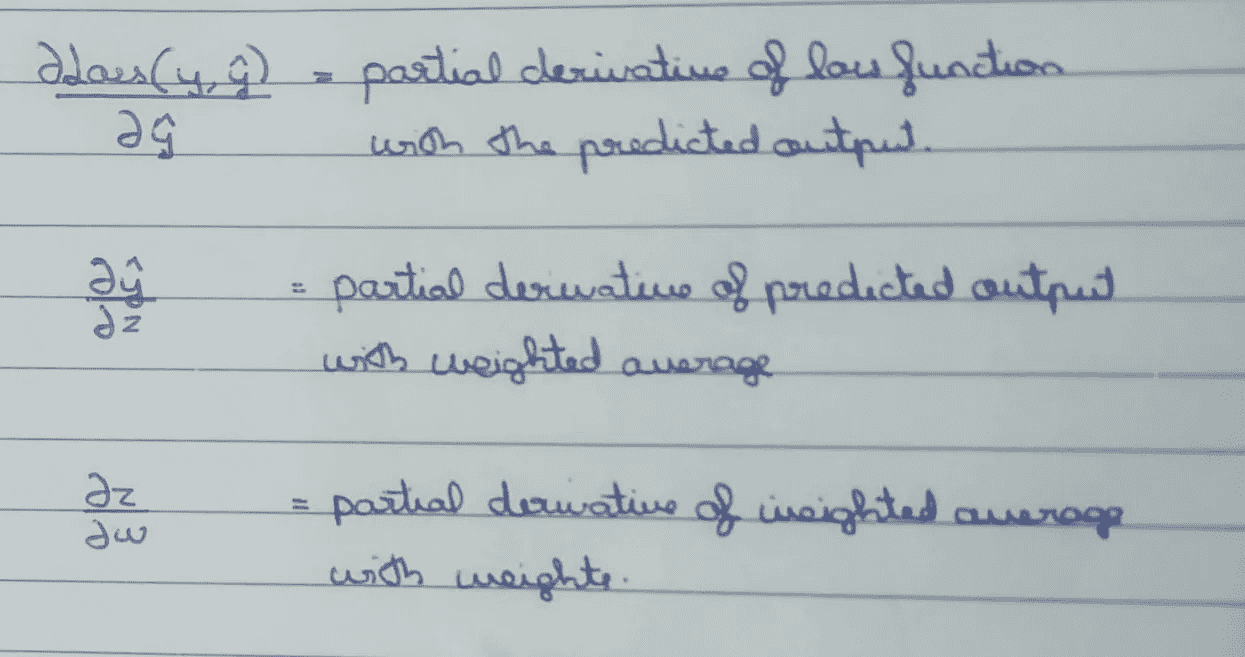 ∂Loss(y, ŷ) = partial derivative of loss function
∂ŷ with the predicted output.
∂ŷ = partial derivative of predicted output
∂z with weighted average
∂z = partial derivative of weighted average
∂w with weights.